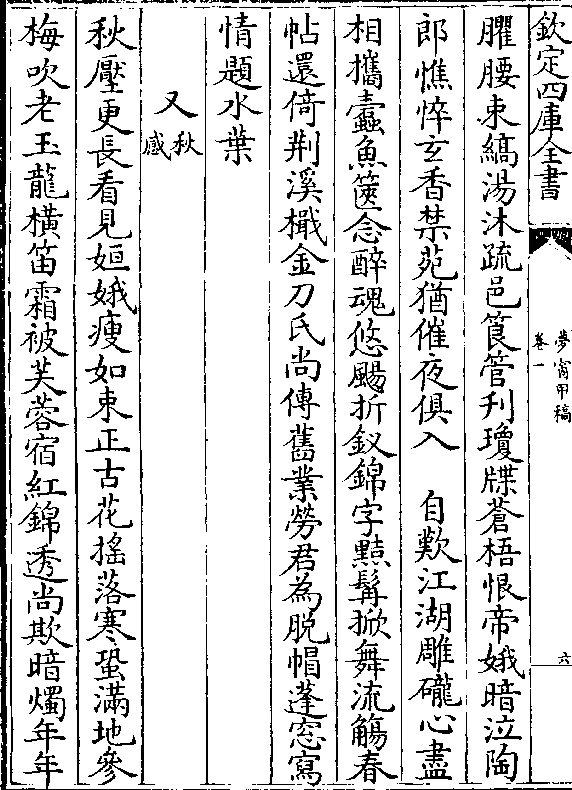 欽定四庫全書
夢窗甲稿
卷一
六
臞腰束縞湯沐疏邑筤管刋瓊牒蒼梧恨帝娥暗泣陶
郎憔悴玄香禁苑猶催夜俱入　自歎江湖雕礲心盡
相攜蠧魚篋念醉魂悠颺折釵錦字黠髯掀舞流觴春
帖還倚荆溪檝金刀氏尚傳舊業勞君為脱帽蓬窓寫
情題水葉
又秋感
秋壓更長看見姮娥瘦如束正古花搖落寒蛩滿地參
梅吹老玉龍橫笛霜被芙蓉宿紅錦透尚欺暗燭年年